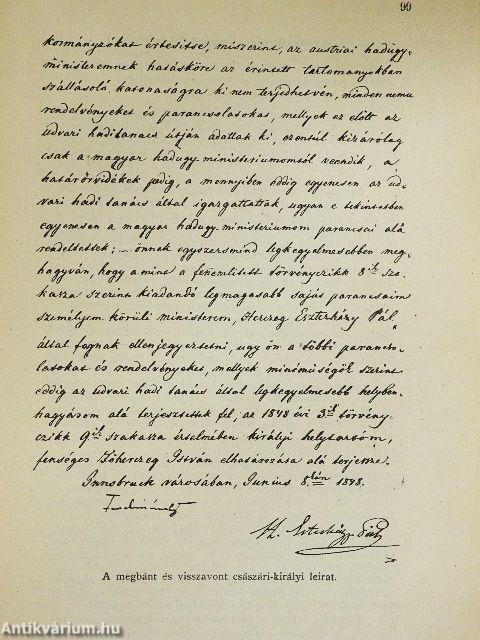 99
kormányzókat értesítse, miszerint, az austriai hadügy-
ministeremnek hatásköre az érintett tartományokban
szállásoló, katonaságra ki nem terjedhetvén, minden nemű
rendelvényeket és parancsolatokat, mellyek ez előtt az
udvari haditanács útján adattak ki, ezentúl kizárólag
csak a magyar hadügy-ministeriumomtól veendik, a
határőrvidékek pedig, a mennyiben eddig egyenesen az ud-
vari hadi tanács által igazgattattak, ugyan e tekintetben
egyenesen a magyar hadügy-ministeriumom parancsai alá
rendeltettek; – önnek egyszersmind legkegyelmesebben meg-
hagyván, hogy a mint a fenemlített törvényczikk 8ik sza-
kasza szerint kiadandó legmagasabb saját parancsaim
személyem körüli ministerem, Herczeg Eszterházy Pál
által fognak ellenjegyeztetni, ugy ön a többi parancso-
latokat és rendelvényeket, mellyek minőműségök szerint
eddig az udvari hadi tanács által legkegyelmesebb helyben-
hagyásom alá terjesztettek fel, az 1848 évi 3ik törvény-
czikk 9ik szakasza értelmében királyi helytartóm,
fenséges Főherczeg István elhatározása alá terjessze.
Innsbruck városában, Junius 8án 1848.
Ferdinánd
H. Esterházy Pál
A megbánt és visszavont császári-királyi leirat.
Antikvárium.hu